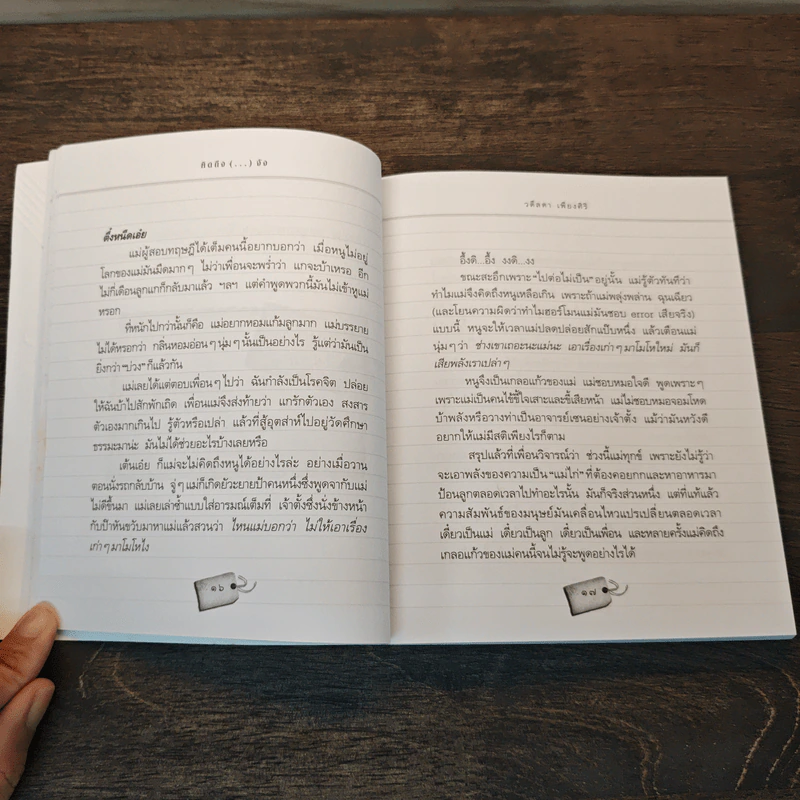 คิดถึง (...) จัง
ดิ๋งหนึดเอ๋ย
แม่ผู้สอบทฤษฎีได้เต็มคนนี้อยากบอกว่า เมื่อหนูไม่อยู่
โลกของแม่มันมืดมากๆ ไม่ว่าเพื่อนจะพร่ำว่า แกจะบ้าเหรอ อีก
ไม่กี่เดือนลูกแกก็กลับมาแล้ว ฯลฯ แต่คำพูดพวกนี้มันไม่เข้าหูแม่
หรอก
ที่หนักไปกว่านั้นก็คือ แม่อยากหอมแก้มลูกมาก แม่บรรยาย
ไม่ได้หรอกว่า กลิ่นหอมอ่อนๆ นุ่มๆ นั้นเป็นอย่างไร รู้แต่ว่ามันเป็น
ยิ่งกว่า “บ่วง” ก็แล้วกัน
แม่เลยได้แต่ตอบเพื่อนๆ ไปว่า ฉันกำลังเป็นโรคจิต ปล่อย
ให้ฉันบ้าไปสักพักเถิด เพื่อนแม่จึงส่งท้ายว่า แกรักตัวเอง สงสาร
ตัวเองมากเกินไป รู้ตัวหรือเปล่า แล้วที่สู้อุตส่าห์ไปอยู่วัดศึกษา
ธรรมะมาน่ะ มันไม่ได้ช่วยอะไรบ้างเลยหรือ
เต้นเอ๋ย ก็แม่จะไม่คิดถึงหนูได้อย่างไรล่ะ อย่างเมื่อวาน
ตอนนั่งรถกลับบ้าน จู่ๆ แม่ก็เกิดยัวะยายป้าคนหนึ่งซึ่งพูดจากับแม่
ไม่ดีขึ้นมา แม่เลยเล่าซ้ำแบบใส่อารมณ์เต็มที่ เจ้าตั้งซึ่งนั่งข้างหน้า
กับป๊าหันขวับมาหาแม่แล้วสวนว่า ไหนแม่บอกว่า ไม่ให้เอาเรื่อง
เก่าๆ มาโมโหไง
๑๖
วดีลดา เพียงศิริ
อึ้งติ...อึ้ง งงติ...งง
ขณะสะอึกเพราะ “ไปต่อไม่เป็น” อยู่นั้น แม่รู้ตัวทันทีว่า
ทำไมแม่จึงคิดถึงหนูเหลือเกิน เพราะถ้าแม่พลุ่งพล่าน ฉุนเฉียว
(และโยนความผิดว่าทำไมฮอร์โมนแม่มันชอบ error เสียจริง)
แบบนี้ หนูจะให้เวลาแม่ปลดปล่อยสักแป๊บหนึ่ง แล้วเตือนแม่
นุ่มๆ ว่า ช่างเขาเถอะนะแม่นะ เอาเรื่องเก่าๆ มาโมโหใหม่ มันก็
เสียพลังเราเปล่าๆ
หนูจึงเป็นเกลอแก้วของแม่ แม่ชอบหมอใจดี พูดเพราะๆ
เพราะแม่เป็นคนไข้ขี้ใจเสาะและขี้เสียหน้า แม่ไม่ชอบหมอจอมโหด
บ้าพลังหรือวางท่าเป็นอาจารย์เซนอย่างเจ้าตั้ง แม้ว่ามันหวังดี
อยากให้แม่มีสติเพียงไรก็ตาม
สรุปแล้วที่เพื่อนวิจารณ์ว่า ช่วงนี้แม่ทุกข์ เพราะยังไม่รู้ว่า
จะเอาพลังของความเป็น “แม่ไก่” ที่ต้องคอยกกและหาอาหารมา
ป้อนลูกตลอดเวลาไปทำอะไรนั้น มันก็จริงส่วนหนึ่ง แต่ที่แท้แล้ว
ความสัมพันธ์ของมนุษย์มันเคลื่อนไหวแปรเปลี่ยนตลอดเวลา
เดี๋ยวเป็นแม่ เดี๋ยวเป็นลูก เดี๋ยวเป็นเพื่อน และหลายครั้งแม่คิดถึง
เกลอแก้วของแม่คนนี้จนไม่รู้จะพูดอย่างไรได้
๑๗